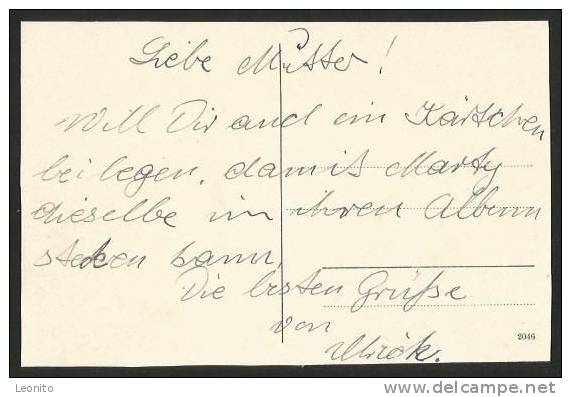 Liebe Mutter!
Will Dir auch ein Kärtchen
beilegen, damit Marty
dieselbe in ihren Album
stecken kann.
Die besten Grüße
von
2046
Leonito
www.delcampe.net